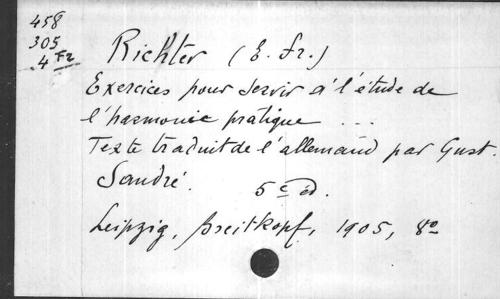 458
305
.4 Fz
Richter (E. Fr.)
Exercices pour servir à l'étude de
l'harmonie pratique ...
Texte traduit de l'allemand par Gust.
Sandré. 5e éd.
Leipzig, Breitkopf, 1905, 8°